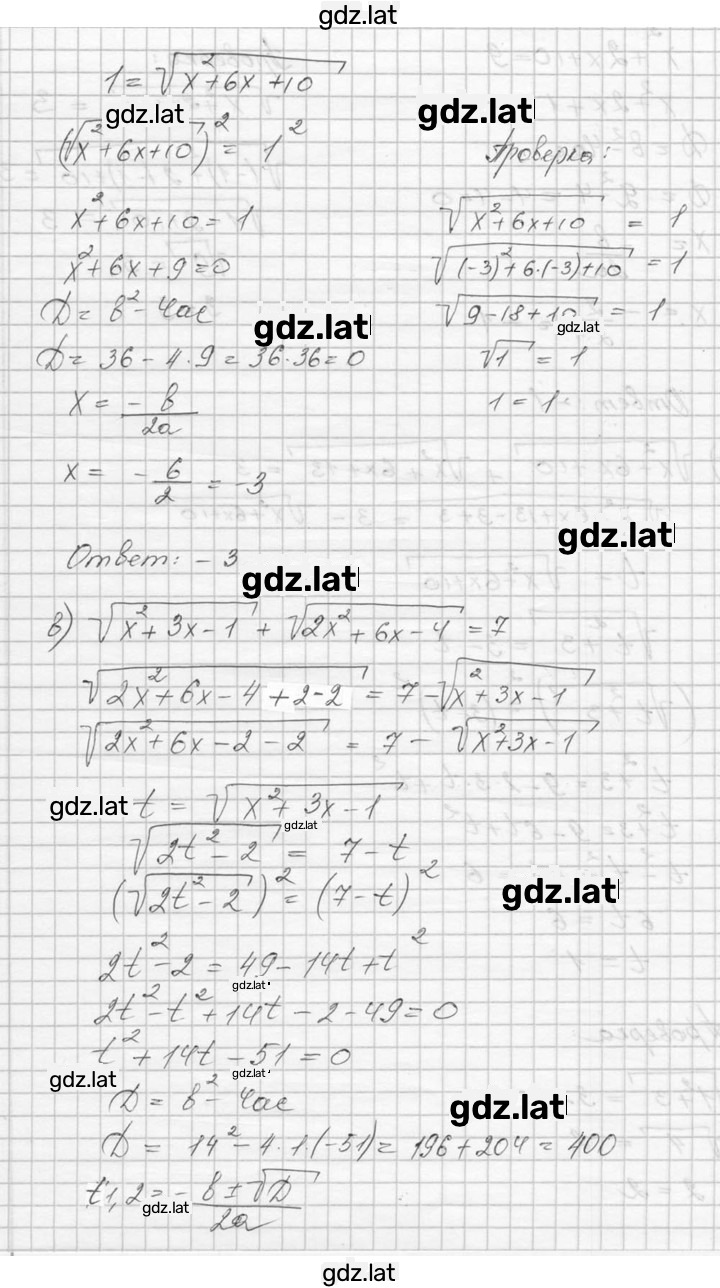 gdz.lat
1 = √(x² + 6x + 10)
gdz.lat gdz.lat
(√(x² + 6x + 10))² = 1²
Проверка:
x² + 6x + 10 = 1
√(x² + 6x + 10) = 1
x² + 6x + 9 = 0
√((-3)² + 6·(-3) + 10) = 1
D = b² - 4ac
gdz.lat
√(9 - 18 + 10) = 1
gdz.lat
D = 36 - 4·9 = 36·36 = 0
√1 = 1
x = -b/2a
1 = 1
x = -6/2 = -3
gdz.lat
Ответ: -3
gdz.lat
в) √(x² + 3x - 1) + √(2x² + 6x - 4) = 7
√(2x² + 6x - 4 + 2 - 2) = 7 - √(x² + 3x - 1)
√(2x² + 6x - 2 - 2) = 7 - √(x² + 3x - 1)
gdz.lat t = √(x² + 3x - 1)
gdz.lat
√(2t² - 2) = 7 - t
(√(2t² - 2))² = (7 - t)²
gdz.lat
2t² - 2 = 49 - 14t + t²
gdz.lat
2t² - t² + 14t - 2 - 49 = 0
t² + 14t - 51 = 0
gdz.lat gdz.lat
D = b² - 4ac
gdz.lat
D = 14² - 4·1·(-51) = 196 + 204 = 400
t1,2 = -b ± √D/2a
gdz.lat
gdz.lat